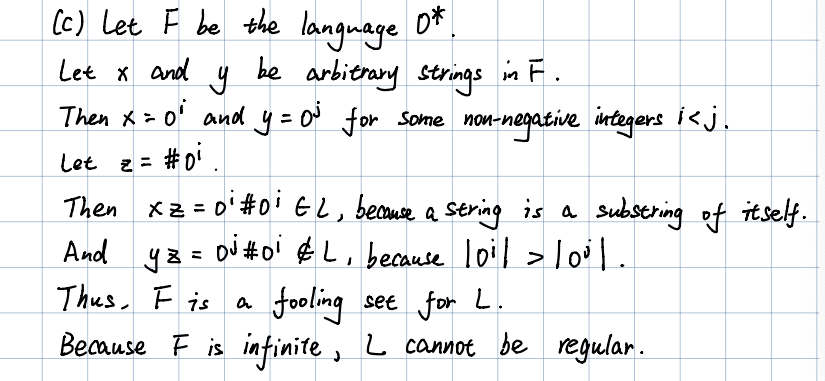 (c) Let F be the language 0*.
Let x and y be arbitrary strings in F.
Then x = 0^i and y = 0^j for some non-negative integers i<j.
Let z = #0^i.
Then xz = 0^i#0^i ∈ L, because a string is a substring of itself.
And yz = 0^j#0^i ∉ L, because |0^i| > |0^j|.
Thus, F is a fooling set for L.
Because F is infinite, L cannot be regular.